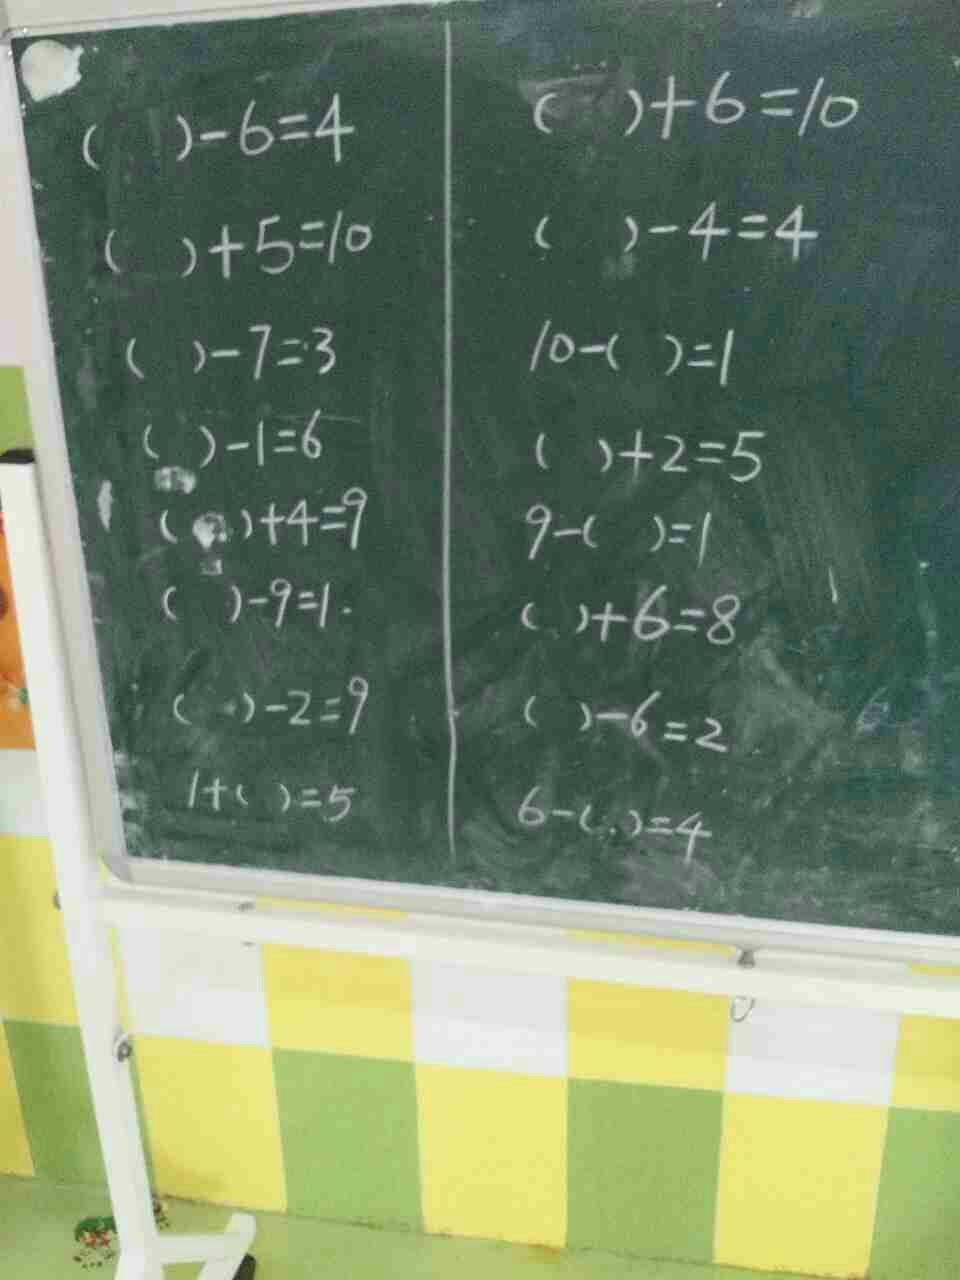 ( )-6=4
( )+5=10
( )-7=3
( )-1=6
( )+4=9
( )-9=1
( )-2=9
1+( )=5
( )+6=10
( )-4=4
10-( )=1
( )+2=5
9-( )=1
( )+6=8
( )-6=2
6-( )=4